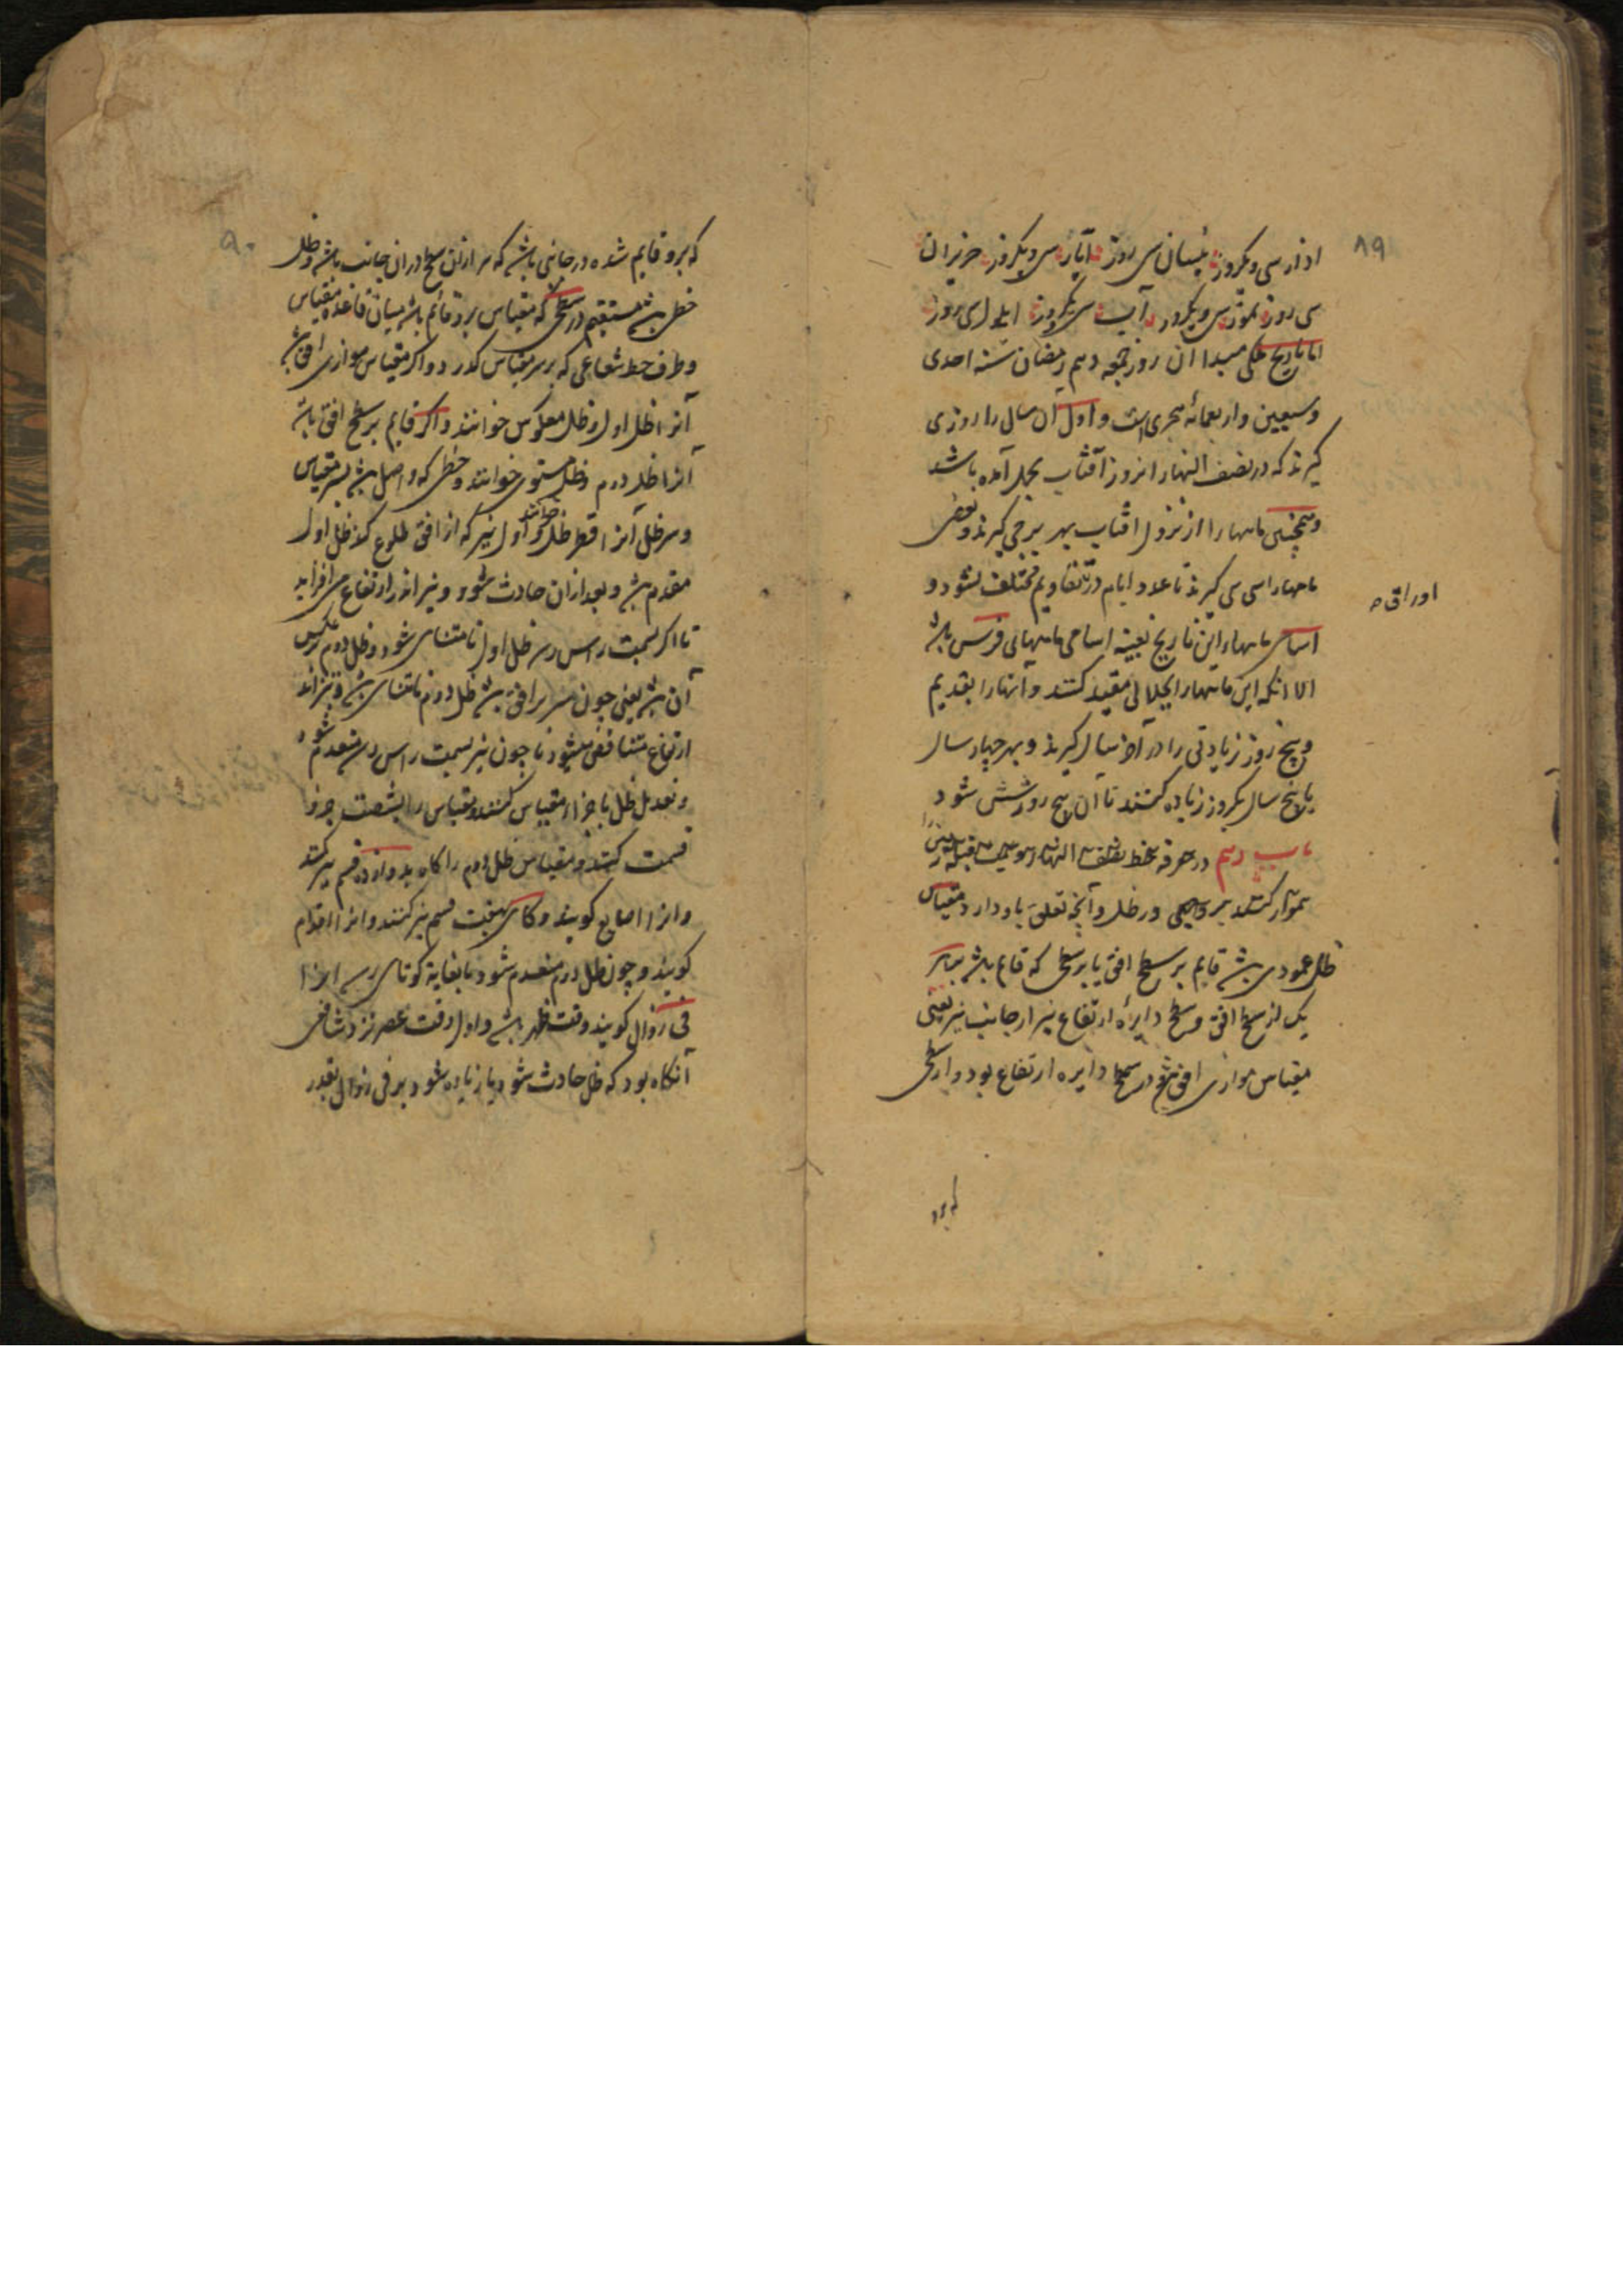 ۸۹
اذار سی ویکروز نیسان سی روز آیار سی ویکروز حزیران
سی روز تموز سی ویکروز آب سی ویکروز ایلول سی روز
اما تاریخ ملکی مبدا ان روز جمعه دهم رمضان سنه احدی
وسبعین واربعمائه هجری است واول آن سال را روزی
کیرند که در نصف النهار انروز آفتاب بحمل آمده باشد
وهمچنین ماهها را از نزول افتاب بهر برجی کیرند وبعضی
ماهها را سی سی کیرند تا عدد ایام در تقاویم مختلف نشود و
اوراق
اسامی ماهها این تاریخ بعینه اسامی ماههای فرس باشد
الا انکه این ماهها را بجلالی مقید کنند و آنها را بقدیم
وپنج روز زیادتی را در آخر سال کیرند وبهر چهار سال
یا پنج سال یکروز زیاده کنند تا ان پنج روز شش شود
باب دهم در معرفه خط نصف النهار و سمت قبله
ظل و آنچه تعلق باو دارد مقیاس
ظل عمودی باشد قایم بر سطح افق یا بر سطحی که قایم باشد بر
یک از سطح افق و سطح دایرهٔ ارتفاع نیر از جانب نیر یعنی
مقیاس موازی افق در سطح دایره ارتفاع بود و از سطحی
که برو
۹۰
که برو قایم شده در جانبی باشد که نیر ازان سطح دران جانب باشد وظل
خطی باشد مستقیم در سطحی که مقیاس برو قائم باشد میان قاعده مقیاس
وطرف خط شعاعی که بر سر مقیاس کذرد و اکر مقیاس موازی افق باشد
آنرا ظل اول وظل معکوس خوانند و اکر قایم بر سطح افق باشد
آنرا ظل دوم وظل مستوی خوانند وخطی که واصل باشد بسر مقیاس
وسر ظل آنرا قطر ظل خوانند و اول نیر که از افق طلوع کند ظل اول
منعدم باشد و بعد ازان حادث شود و نیز اندر ارتفاع می افزاید
تا اکر بسمت راس رسد ظل اول نامتناهی شود وظل دوم بعکس
آن باشد یعنی چون نیر بر افق باشد ظل دوم نامتناهی باشد
ارتفاع متناقص میشود تا چون نیر بسمت راس رسد منعدم شود
و تعدیل ظل باجزاء مقیاس کنند ومقیاس را بشصت جزو
قسمت کنند و مقیاس ظل دوم را کاه بدوازده قسم نیز کنند
و انرا اصابع کویند و کاهی بهفت قسم نیز کنند و انرا اقدام
کویند و چون ظل دوم منعدم شود یا بغایة کوتاهی رسد انرا
فی زوال کویند وقت ظهر باشد و اول وقت عصر نزد شافعی
آنکاه بود که ظل حادث شود یا زیاده شود بر فی زوال بقدر